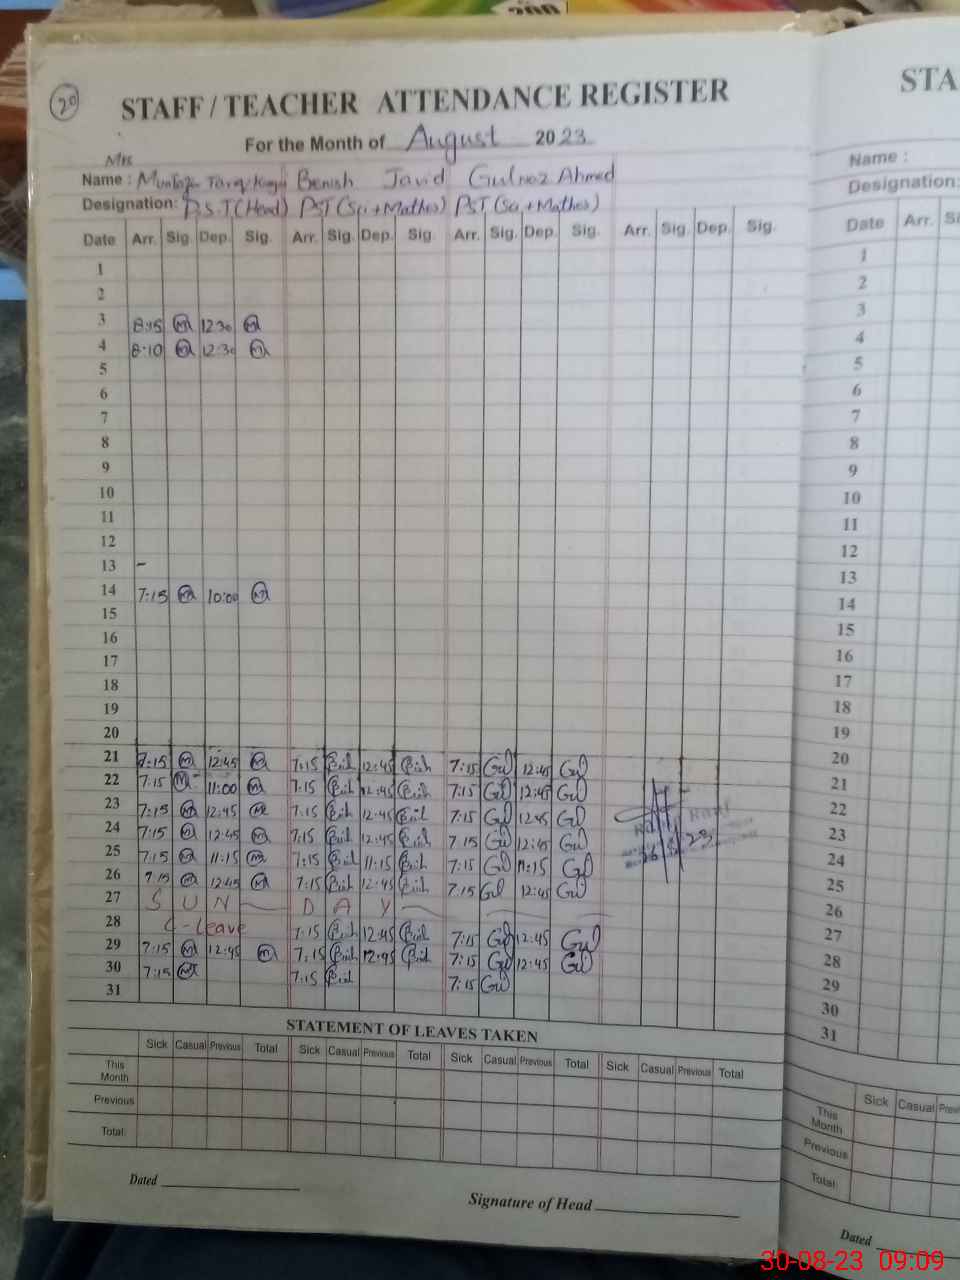 200
20
STAFF / TEACHER ATTENDANCE REGISTER
For the Month of August 2023
Mrs
Name : Mumtaz Tariq Benish Javid Gulnaz Ahmed
Designation: P.S.T (Head) PST (Sci + Mathes) PST (Sci + Mathes)
Date Arr. Sig. Dep. Sig. Arr. Sig. Dep. Sig. Arr. Sig. Dep. Sig. Arr. Sig. Dep. Sig.
1
2
3 8:15 M 12:30 M
4 8:10 M 12:30 M
5
6
7
8
9
10
11
12
13 -
14 7:15 M 10:00 M
15
16
17
18
19
20
21 7:15 M 12:45 M 7:15 12:45 7:15 Gul 12:45 Gul
22 7:15 M 11:00 M 7:15 12:45 7:15 Gul 12:45 Gul
23 7:15 M 12:45 M 7:15 12:45 7:15 Gul 12:45 Gul
24 7:15 M 12:45 M 7:15 12:45 7:15 Gul 12:45 Gul
25 7:15 M 11:15 M 7:15 11:15 7:15 Gul 11:15 Gul
26 7:15 M 12:45 M 7:15 12:45 7:15 Gul 12:45 Gul
27 S U N D A Y
28 C-Leave 7:15 12:45 7:15 Gul 12:45 Gul
29 7:15 M 12:45 M 7:15 12:45 7:15 Gul 12:45 Gul
30 7:15 M 7:15 7:15 Gul
31
STATEMENT OF LEAVES TAKEN
Sick Casual Previous Total Sick Casual Previous Total Sick Casual Previous Total Sick Casual Previous Total
This Month
Previous
Total
Dated
Signature of Head
STA
Name :
Designation:
Date Arr. Si
1
2
3
4
5
6
7
8
9
10
11
12
13
14
15
16
17
18
19
20
21
22
23
24
25
26
27
28
29
30
31
Sick Casual Previ
This Month
Previous
Total
Dated
30-08-23 09:09